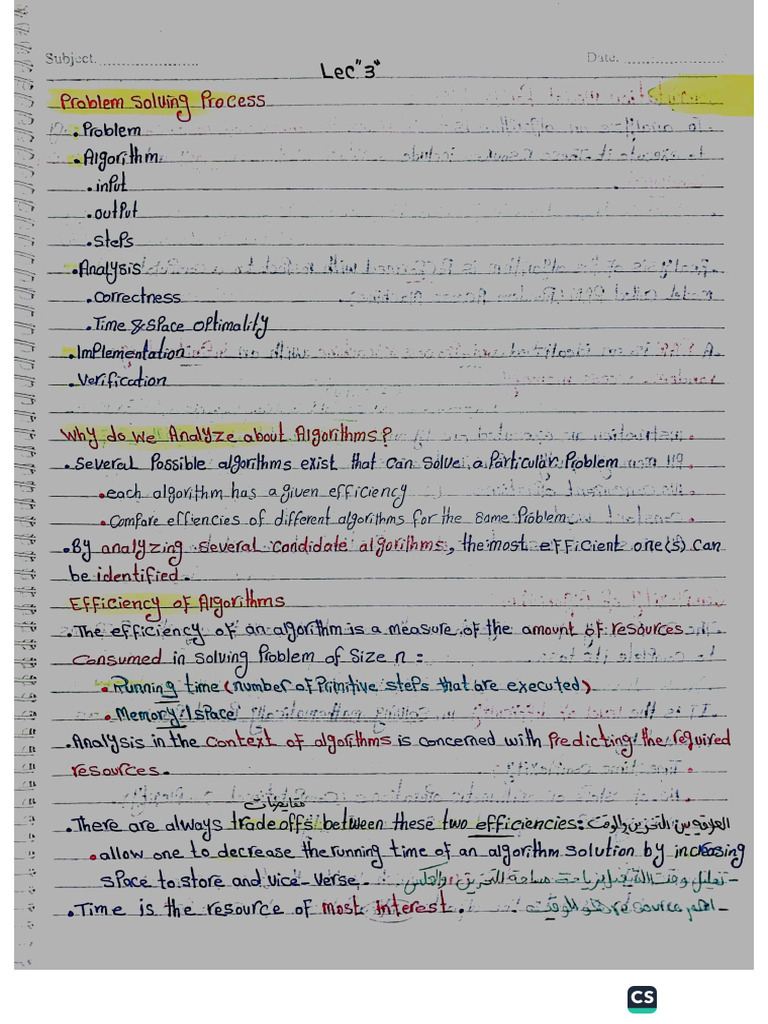 Subject.
Date.
Lec "3"
Problem Solving Process
• Problem
• Algorithm
• input
• output
• steps
• Analysis
• Correctness
• Time & space optimality
• Implementation
• Verification
Why do we Analyze about Algorithms?
• Several Possible algorithms exist that can solve a Particular Problem
• each algorithm has a given efficiency
• Compare effiencies of different algorithms for the same Problem
• By analyzing several candidate algorithms, the most efficient one(s) can
be identified.
Efficiency of Algorithms
• The efficiency of an algorithm is a measure of the amount of resources
consumed in solving Problem of Size n:
• Running time (number of Primitive steps that are executed)
• Memory/space
• Analysis in the context of algorithms is concerned with Predicting the required
resources.
مقايضات
• There are always tradeoffs between these two efficiencies: التخزين والوقت
• allow one to decrease the running time of an algorithm solution by increasing
space to store and vice-verse.
- تقليل وقت التنفيذ بزيادة مساحة للتخزين، والعكس
• Time is the resource of most interest.
- اهم resource هو الوقت
CS